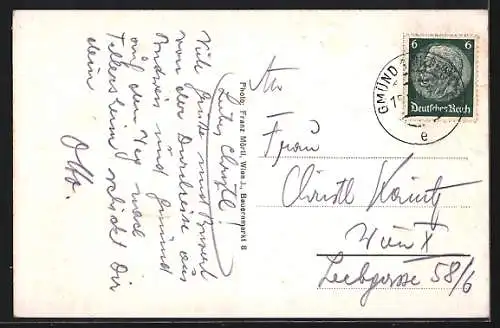 Liebes Christl!
Viele Grüße und Bussert
von der Durchreise aus
und Gmünd
auf dem Weg nach
schickt Dir
dein
Otto.
Photo: Franz Mörtl, Wien I., Bauernmarkt 8
An
Frau
Christl
Wien X
58/6
6 6
Deutsches Reich
GMÜND
e